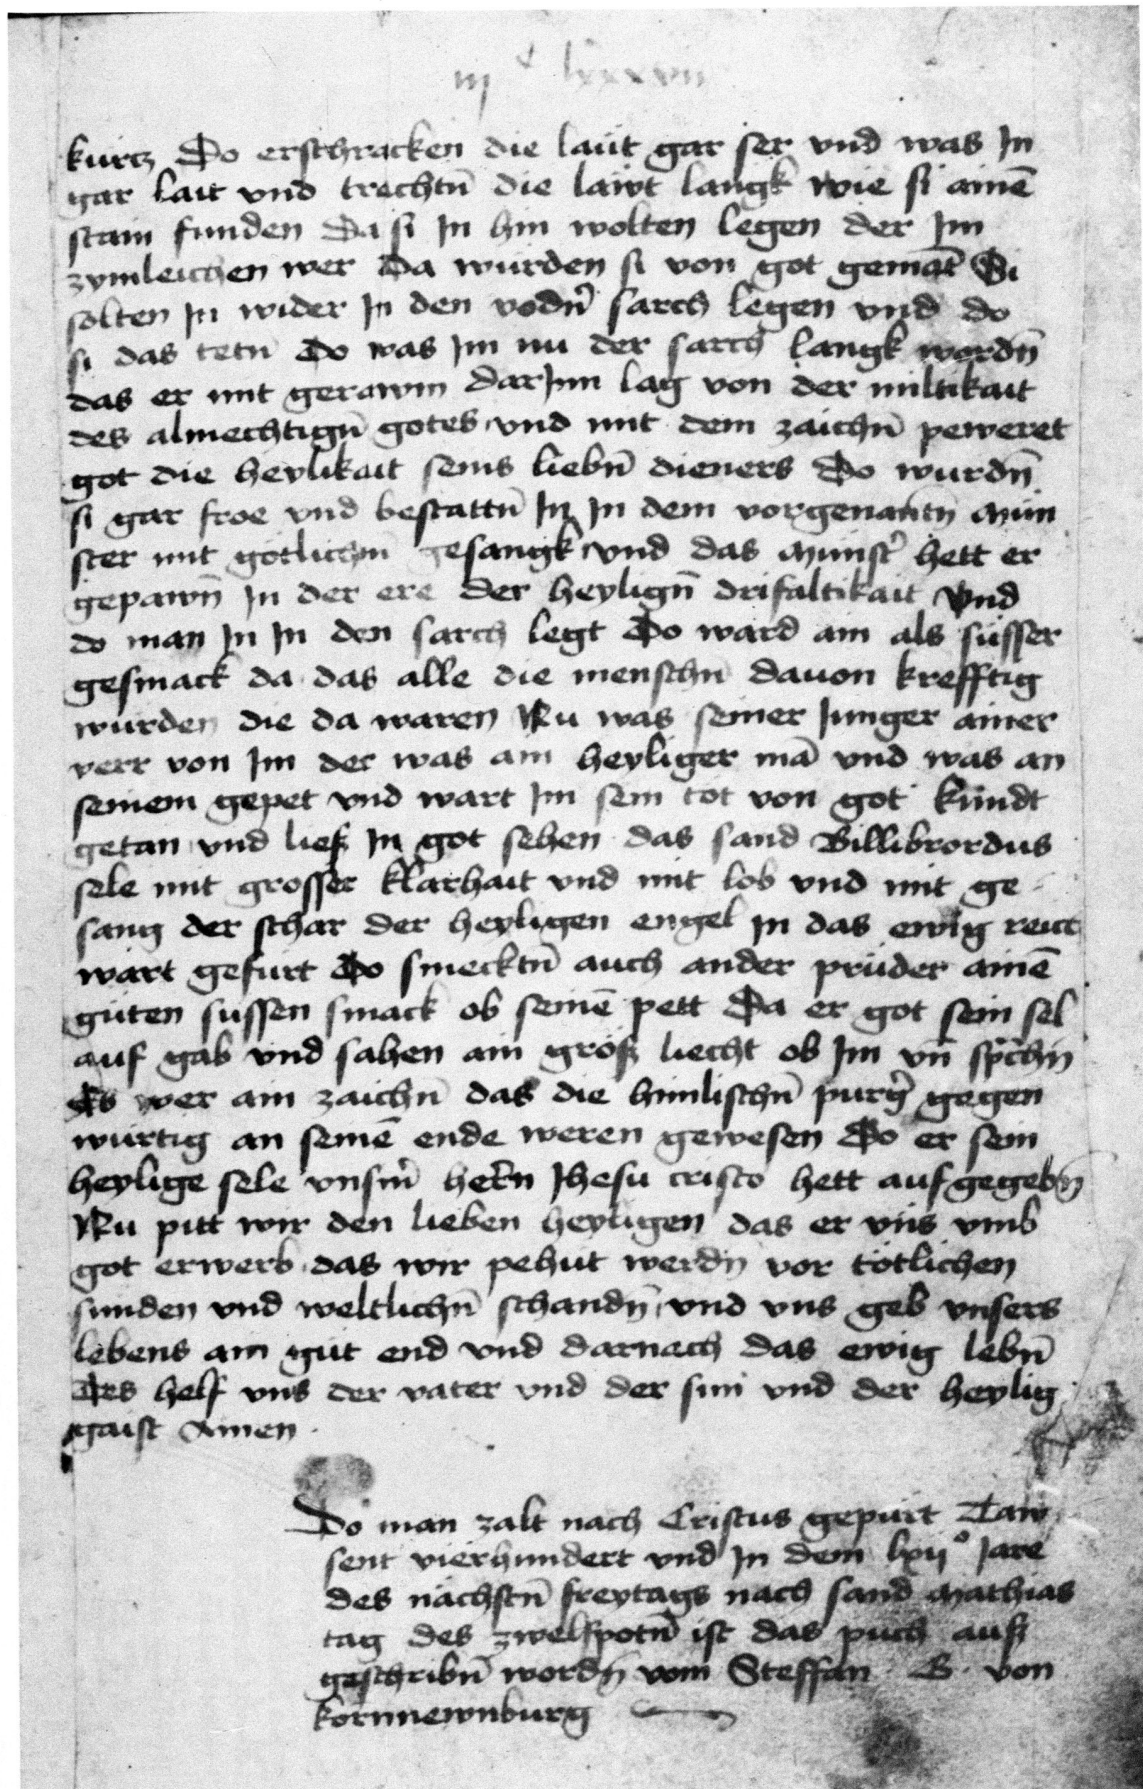 iijc lxxxvii
kurcz Do erschracken die laẅt gar ser vnd was In
gar lait vnd trechtñ die laẅt langk wie si ainē
stain funden Da si In hin wolten legen der Im
zymleichen wer Da wurden si von got gemāt Si
solten In wider In den vodñ sarch legen vnd do
si das tetñ Do was Im nu der sarch langk wordñ
das er mit gerawm darInn lag von der miltikait
des almechtigñ gotes vnd mit dem zaichñ peweret
got die heylikait seins liebñ dieners Do wurdñ
si gar froe vnd bestattñ In In dem vorgenantñ Mün
ster mit götlichm gesangk vnd das Münst' hett er
gepawñ In der ere der heyligñ drifaltikait Vnd
do man In In den sarch legt Do ward ain als süsser
gesmack da das alle die menschñ dauon krefftig
wurden die da waren Nu was seiner Junger ainer
verr von Im der was ain heyliger mā vnd was an
seinem gepet vnd wart Im sein tot von got kundt
getan vnd liesz In got sehen das sand Billibrordus
sele mit grosser klarhait vnd mit lob vnd mit ge
sang der schar der heyligen engel In das ewig reich
wart gefürt Do smecktñ auch ander prüder ainē
güten süssen smack ob seinē pett Da er got sein sel
auf gab vnd sahen ain grosz liecht ob Im vñ sp̄chñ
Es wer ain zaichñ das die himlischñ purg' gegen
würtig an seinē ende weren gewesen Do er sein
heylige sele vnsm̄ her̄n Jhesu cristo hett auf gegebñ
Nu pitt wir den lieben heyligen das er vns vmb
got erwerb das wir pehüt werdñ vor tötlichen
sunden vnd weltlichñ schandñ vnd vns geb vnsers
lebens ain güt end vnd darnach das ewig lebñ
Des helf vns der vater vnd der sun vnd der heylig
gaist Amen
Do man zalt nach Cristus gepurt Taw
sent vierhundert vnd In dem lxij° Jare
des nächstñ freytags nach sand Mathias
tag des zwelfpotñ ist das püch ausz
geschribñ wordñ vom Steffan · B · von
kornnewnburg